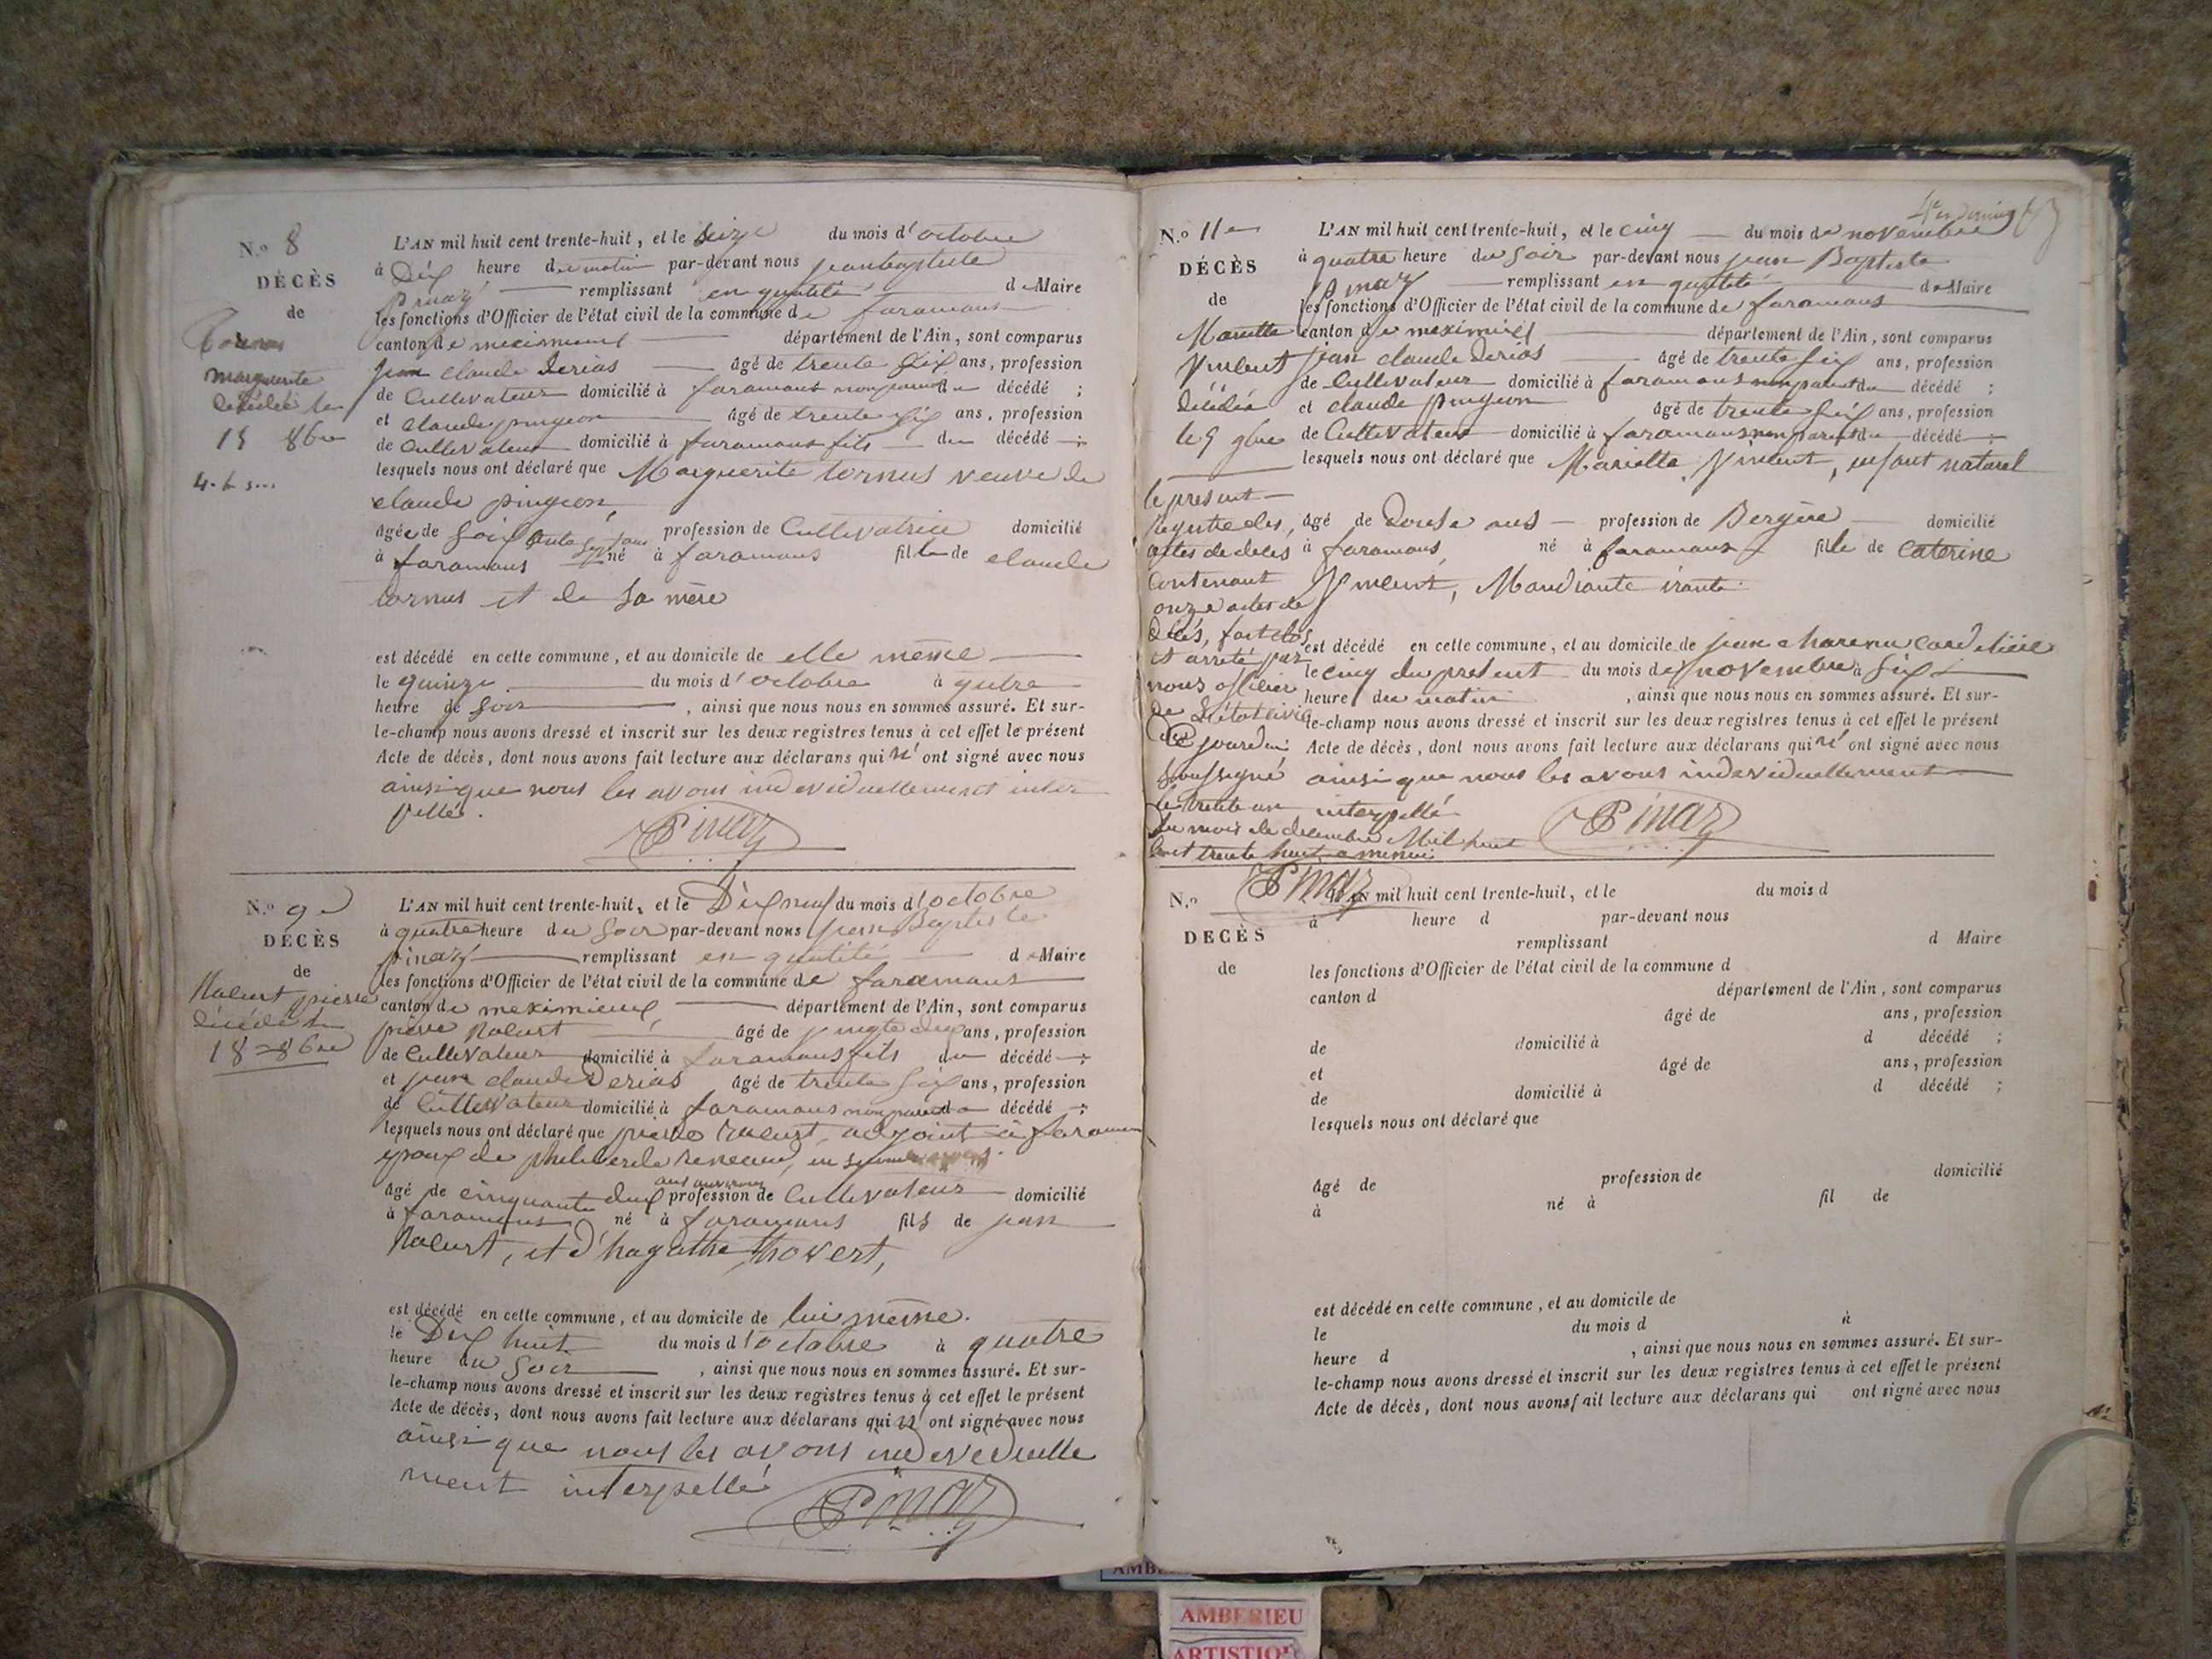 N.o 8
DÉCÈS
de
marguerite
décédée le
15 8bre
L'AN mil huit cent trente-huit, et le seize du mois d'octobre
à dix heure du matin par-devant nous jeanbaptiste
pinaz remplissant en qualité de Maire
les fonctions d'Officier de l'état civil de la commune de faramans
canton de meximieux département de l'Ain, sont comparus
jean claude Derias âgé de trente six ans, profession
de Cultivateur domicilié à faramans non parent du décédé ;
et claude pingeon âgé de trente six ans, profession
de Cultivateur domicilié à faramans fils du décédé ;
lesquels nous ont déclaré que Marguerite tornus veuve de
claude pingeon,
âgée de soixante ans profession de Cultivatrice domicilié
à faramans né à faramans fille de claude
tornus et de sa mère
est décédé en cette commune, et au domicile de elle même
le quinze du mois d'octobre à qutre
heure de soir , ainsi que nous nous en sommes assuré. Et sur-
le-champ nous avons dressé et inscrit sur les deux registres tenus à cet effet le présent
Acte de décès, dont nous avons fait lecture aux déclarans qui n'ont signé avec nous
ainsi que nous les avons individuellement inter
pellé.
Pinaz
N.o 9e
DÉCÈS
de
Nalurt pierre
décédé le
18 8bre
L'AN mil huit cent trente-huit, et le Dix neuf du mois d'octobre
à quatre heure du soir par-devant nous jean Baptiste
pinaz remplissant en qualité de Maire
les fonctions d'Officier de l'état civil de la commune de faramans
canton de meximieux département de l'Ain, sont comparus
pierre Nalurt âgé de vingt deux ans, profession
de Cultivateur domicilié à faramans fils du décédé ;
et jean claude Derias âgé de trente six ans, profession
de Cultivateur domicilié à faramans non parent du décédé ;
lesquels nous ont déclaré que pierre Nalurt, adjoint à faramans
epoux de philiberte
âgé de cinquante deux ans environ profession de Cultivateur domicilié
à faramans né à faramans fils de jean
Nalurt, et d'hagathe thovert,
est décédé en cette commune, et au domicile de lui même.
le Dix huit du mois d'octobre à quatre
heure du soir , ainsi que nous nous en sommes assuré. Et sur-
le-champ nous avons dressé et inscrit sur les deux registres tenus à cet effet le présent
Acte de décès, dont nous avons fait lecture aux déclarans qui n'ont signé avec nous
ainsi que nous les avons individuelle
ment interpellé
Pinaz
N.o 11e
DÉCÈS
de
Mariette
Vincent
décédée
le 5 9bre
L'AN mil huit cent trente-huit, et le cinq du mois de novembre
à quatre heure du soir par-devant nous jean Baptiste
pinaz remplissant en qualité de Maire
les fonctions d'Officier de l'état civil de la commune de faramans
canton de meximieux département de l'Ain, sont comparus
jean claude Derias âgé de trente six ans, profession
de Cultivateur domicilié à faramans non parent du décédé ;
et claude pingeon âgé de trente six ans, profession
de Cultivateur domicilié à faramans non parent du décédé ;
lesquels nous ont déclaré que Mariette Vincent, enfant naturel
âgé de Douse ans profession de Bergère domicilié
à faramans, né à faramans fille de Caterine
Vincent, Mandiante érante
est décédé en cette commune, et au domicile de jean
le cinq du présent du mois de novembre à six
heure du matin , ainsi que nous nous en sommes assuré. Et sur-
le-champ nous avons dressé et inscrit sur les deux registres tenus à cet effet le présent
Acte de décès, dont nous avons fait lecture aux déclarans qui n'ont signé avec nous
ainsi que nous les avons individuellement
interpellé
Pinaz
le présent
Registre des
actes de décès
contenant
onze actes de
décés, fait clos
et arrêté par
nous officier
de l'état civil
soussigné
le trente un
du mois de décembre Mil huit
cent trente huit a minui
Pinaz
N.o
DECÈS
de
L'AN mil huit cent trente-huit, et le du mois d
à heure d par-devant nous
remplissant d Maire
les fonctions d'Officier de l'état civil de la commune d
canton d département de l'Ain, sont comparus
âgé de ans, profession
de domicilié à d décédé ;
et âgé de ans, profession
de domicilié à d décédé ;
lesquels nous ont déclaré que
âgé de profession de domicilié
à né à fil de
est décédé en cette commune, et au domicile de
le du mois d à
heure d , ainsi que nous nous en sommes assuré. Et sur-
le-champ nous avons dressé et inscrit sur les deux registres tenus à cet effet le présent
Acte de décès, dont nous avons fait lecture aux déclarans qui ont signé avec nous
AMBERIEU
ARTISTIQUE